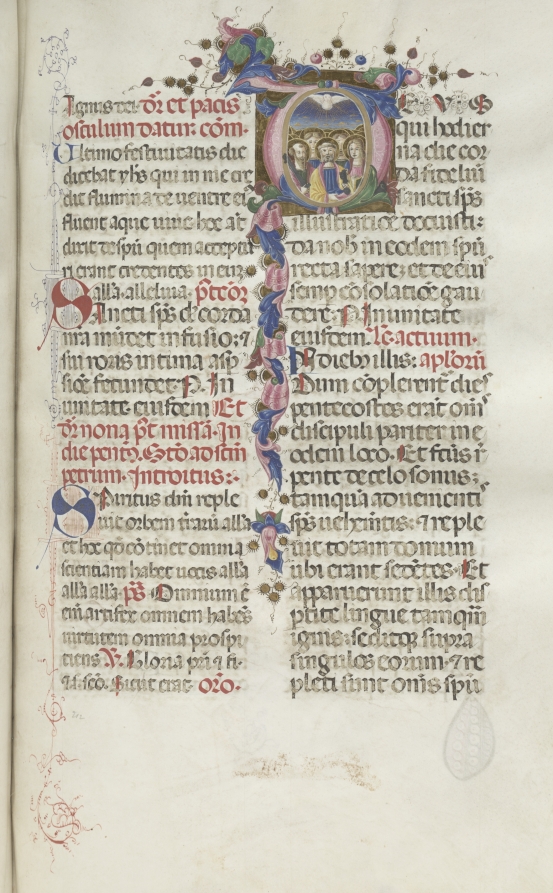 Agnus dei. Dr̄ et pacis
osculum datur. cōm.
Ultimo festivitatis die
dicebat yhs qui in me cre
dit flumina de ventre ei
fluent aque vive hoc aūt
dixit de spū quem accepturi
erant credentes in eum
alla. alleluia. p̄tcōr
Sancti sp̄s d̄ corda
nr̄a mūdet infusio: ⁊
sui roris intima aspe
siōe fecundet. P. In
unitate eiusdem Et
dr̄ nona p̄t missā. In
die pentꝰ. Stō ad scm̄
petrum. Introitus:.
Spiritus dn̄i reple
vit orbem t̄rarū alla
et hoc qđ cōtinet omnia
scientiam habet vocis alla
alla alla. ps̄. Omnium ē
eni artifex omnem habēs
virtutem omnia prospi
ciens. V. Gloria pr̄i ⁊ fi.
⁊ s. sco. Sicut erat. orō.
DEVS
qui hodier
na die cor
da fidelium
sancti sp̄s
illustratiōe docuisti:
da nob̄ in eodem spū
recta sapere: et de eiꝰ
semp̄ cōsolatiōe gau
dere. P. In unitate
eiusdem. Lc̄. actuum.
In diebꝰ illis: aplōrū
Dum cōplerent̄ dies
pentecostes erāt om̄s
discipuli pariter in e
odem loco. Et fctūs ē
repente de celo sonus:
tamquā advenientis
sp̄s vehemētis: ⁊ reple
vit totam domum
ubi erant sedētes. Et
apparuerunt illis dis
p̄tite lingue tamqm̄
ignis: seditq; supra
singulos eorum. ⁊ re
pleti sunt om̄s spū